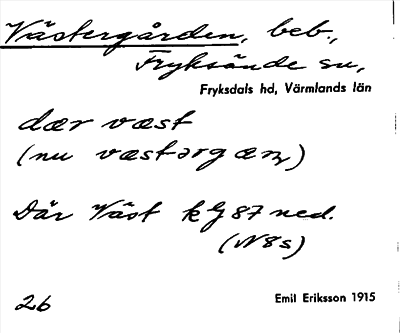 Västergården, beb.,
Fryksände sn,
Fryksdals hd, Värmlands län
dær væst
(nu væstərgæɳ)
Där Väst kg 87 ned.
(N8s)
26
Emil Eriksson 1915